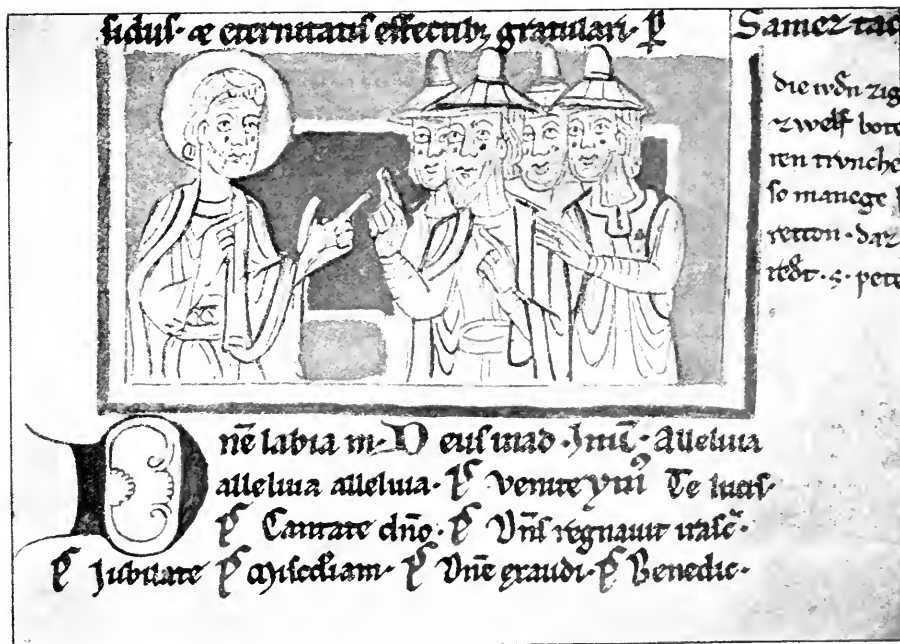 sidus · & eternitatis effectibꝫ gratulari · ꝑ
Samez tac
die
zwelf bote
ren trvnche
so manege
retton · daz
redt · s · pete
Dn̄e labia m · Deus inad · Alleluia
alleluia alleluia · P̃s Venite ymꝰ Te lucis ·
P̃s Cantate dn̄o · P̃s Dn̄s regnauit
P̃s Jubilate P̃s Misc̄diam · P̃s Dn̄e exaudi · P̃s Benedic ·